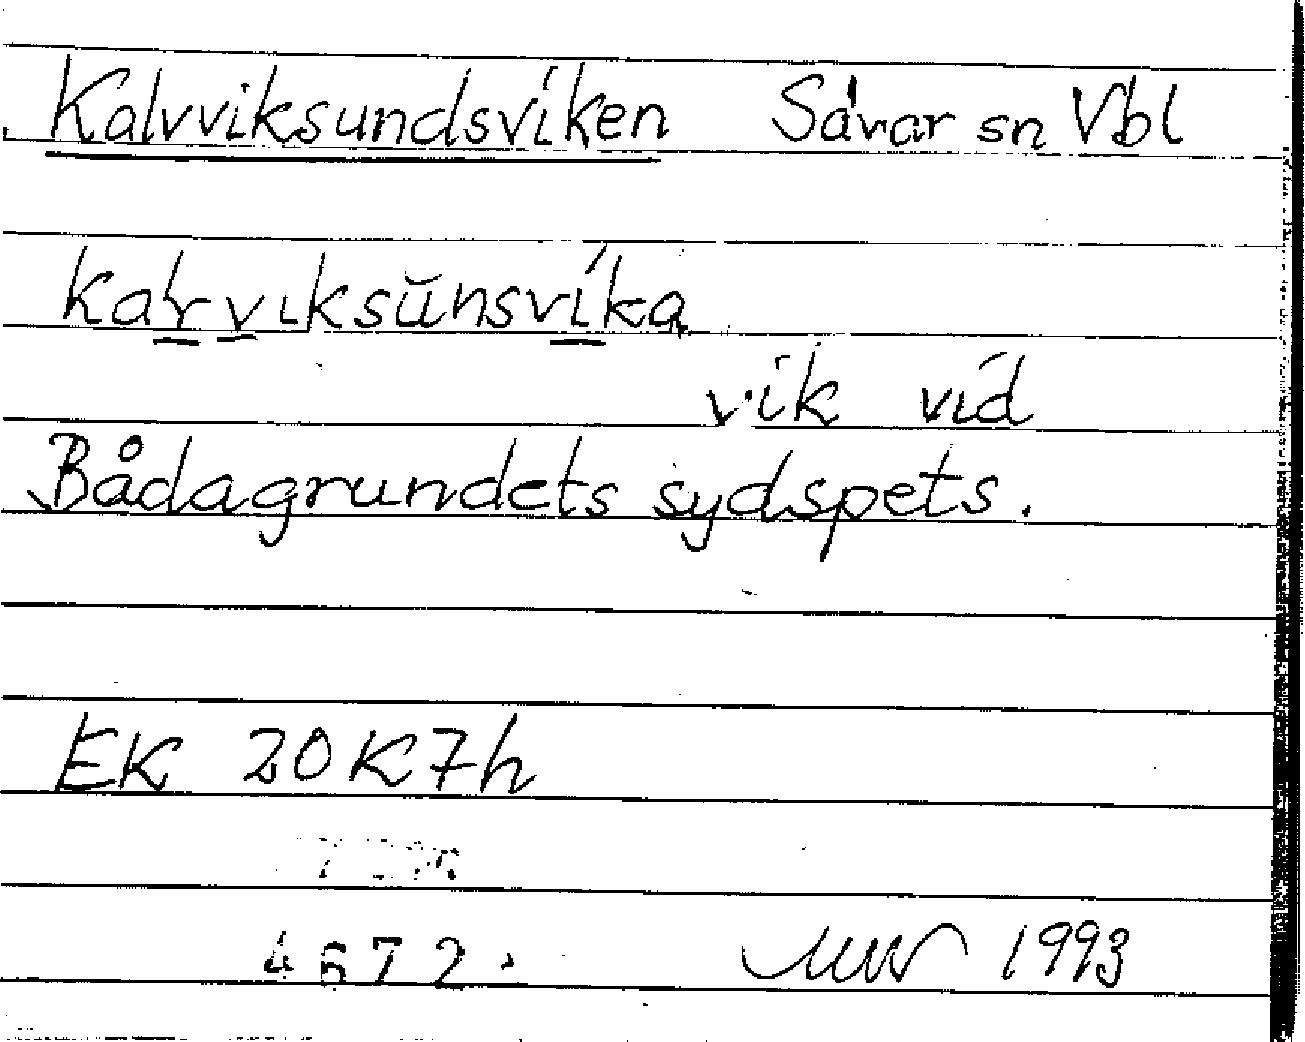 Kalvviksundsviken Sävar sn Vbl
kaɽviksŭnsvíka
vik vid
Bådagrundets sydspets.
EK 20K7h
4672
1993